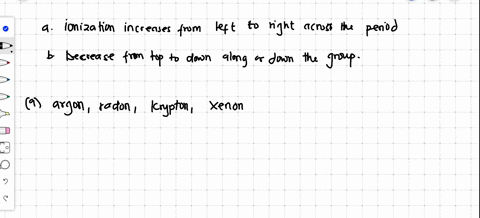 a. ionization increases from left to right across the period
b Decrease from top to down along or down the group.
(a) argon, radon, krypton, xenon